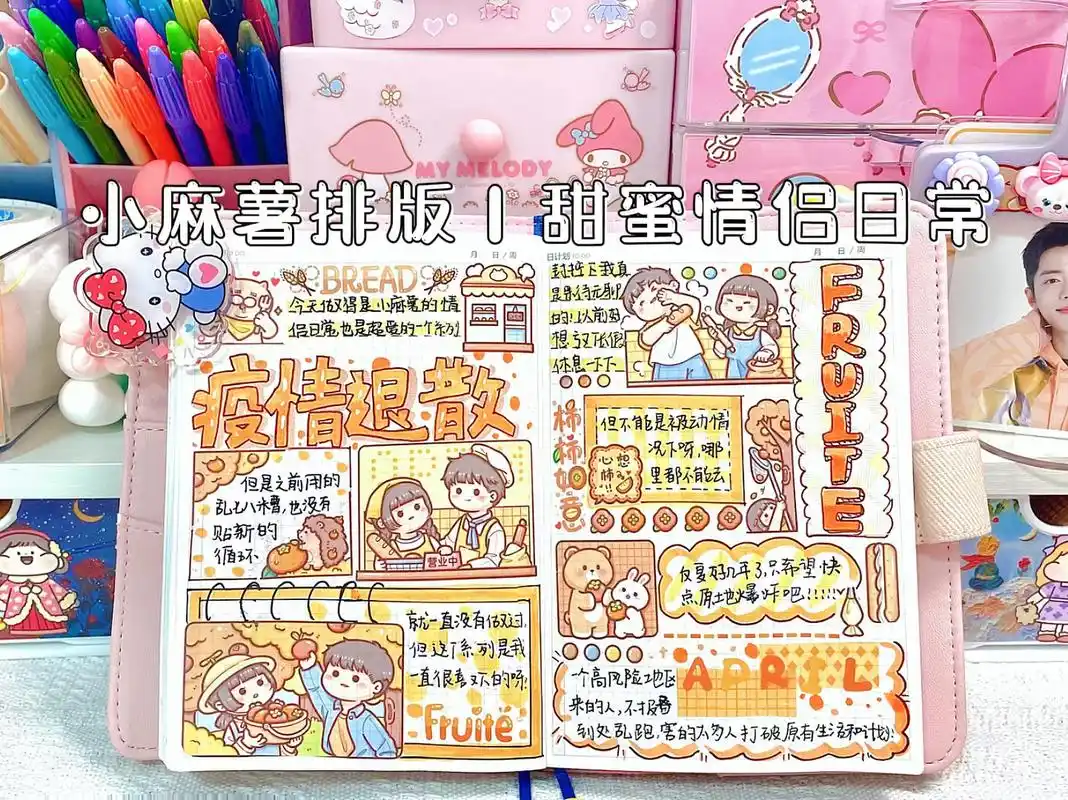 MY MELODY
小麻薯排版 | 甜蜜情侣日常
月 日/周
BREAD
今天做得是小麻薯的情
侣日常,也是超爱的一个系列
疫情退散
但是之前用的
乱七八糟,也没有
贴新的
循环
营业中
就一直没有做过,
但这个系列是我
一直很喜欢的呀
Fruité
日计划
月 日/周
封控下我真
的!以前都
想
休息一下
FRUITE
柿柿如意
但不能是被动情
况下呀,哪
里都不能去
心想
柿
反复好几年了,只希望快
点原地爆炸吧!!!!!
APRIL
一个高风险地区
来的人,不报备
到处乱跑,害的大家人打破原有生活和计划